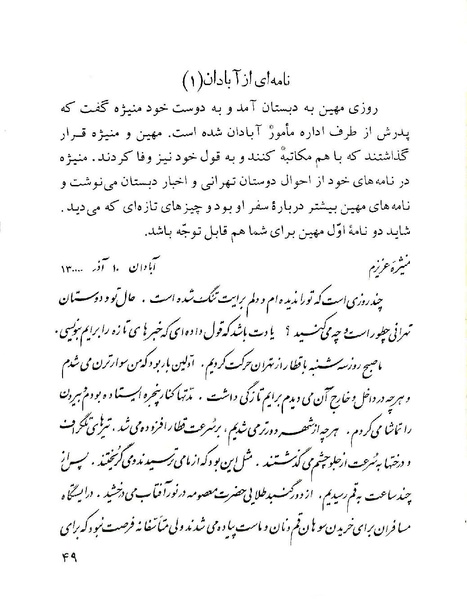 نامه‌ای از آبادان (۱)
روزی مهین به دبستان آمد و به دوست خود منیژه گفت که
پدرش از طرف اداره مأمورِ آبادان شده است. مهین و منیژه قرار
گذاشتند که با هم مکاتبه کنند و به قول خود نیز وفا کردند. منیژه
در نامه‌های خود از احوال دوستان تهرانی و اخبار دبستان می‌نوشت و
نامه‌های مهین بیشتر دربارهٔ سفر او بود و چیزهای تازه‌ای که می‌دید.
شاید دو نامهٔ اوّل مهین برای شما هم قابل توجّه باشد.
منیژهٔ عزیزم آبادان ۱۰ آذر ۱۳۰۰۰۰
چند روزی است که تو را ندیده‌ام و دلم برایت تنگ شده است. حال تو و دوستان
تهرانی چطور است و چه می‌کنید؟ یادت باشد که قول داده‌ای که خبرهای تازه را برایم بنویسی.
ما صبح روز سه‌شنبه با قطار از تهران حرکت کردیم. اولین بار بود که من سوار ترن می‌شدم
و هرچه در داخل و خارج آن می‌دیدم برایم تازگی داشت. مدتها کنار پنجره ایستاده بودم و بیرون
را تماشا می‌کردم. هرچه از شهر دورتر می‌شدیم، بر سرعت قطار افزوده می‌شد. تیرهای تلگراف
و درختها به سرعت از جلو چشمم می‌گذشتند. مثل این بود که از ما می‌ترسیدند و می‌گریختند. پس از
چند ساعت به قم رسیدیم. از دور گنبد طلایی حضرت معصومه در نور آفتاب می‌درخشید. در ایستگاه
مسافران برای خریدن سوهان قم و نان و ماست پیاده می‌شدند ولی متأسفانه فرصت نبود که برای
۴۹